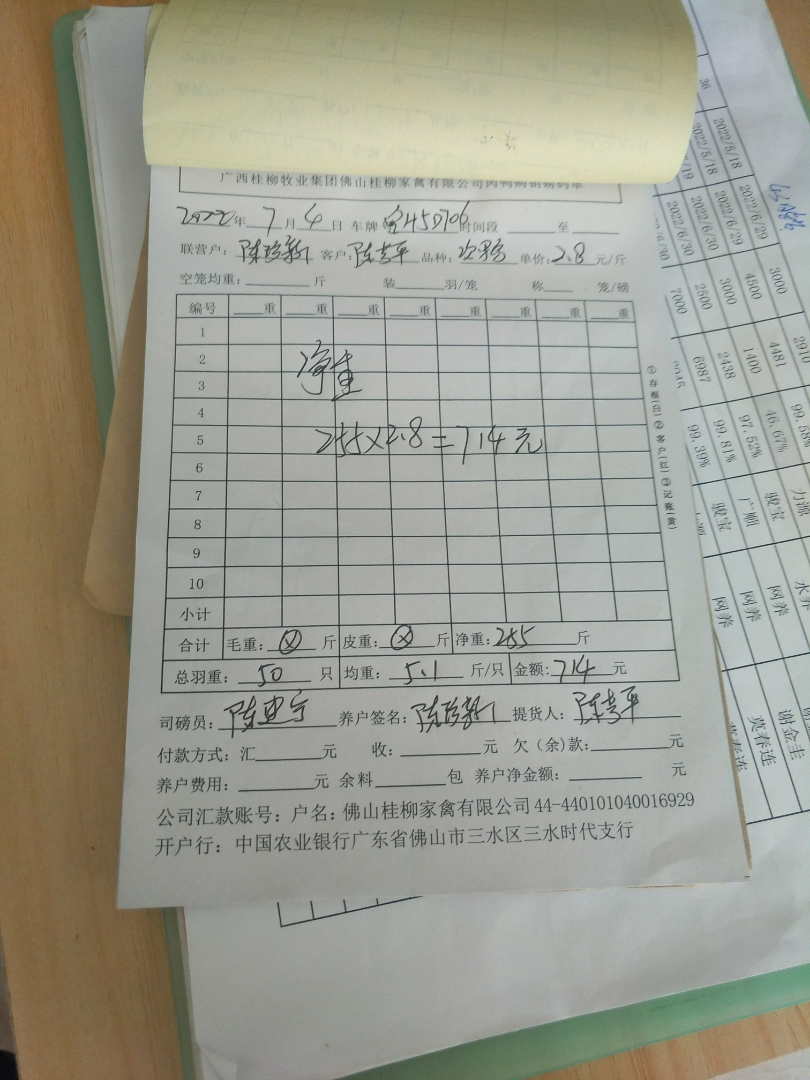 广西桂柳牧业集团佛山桂柳家禽有限公司肉鸭购销磅码单
2022年 7月 4日 车牌 45D706 时间段 至
联营户: 客户: 品种: 单价: 2.8 元/斤
空笼均重: 斤 装 羽/笼 称 笼/磅
编号 重 重 重 重 重 重 重 重
1
2
净重
3
4
5 255×2.8=714元
6
7
8
9
10
小计
合计 毛重: ⊗ 斤 皮重: ⊗ 斤 净重: 255 斤
总羽重: 50 只 均重: 5.1 斤/只 金额: 714 元
司磅员: 养户签名: 提货人:
付款方式: 汇 元 收: 元 欠(余)款: 元
养户费用: 元 余料 包 养户净金额: 元
公司汇款账号: 户名: 佛山桂柳家禽有限公司 44-440101040016929
开户行: 中国农业银行广东省佛山市三水区三水时代支行
①存根(白) ②客户(红) ③记账(黄)
36
2022/5/18
2022/5/18
2022/6/29
2022/6/29
2022/6/30
2022/6/30
3000
4500
3000
2500
7000
2910
4481
1400
2438
6987
99.58%
46.67%
97.52%
99.81%
99.39%
力源
骏宝
广顺
骏宝
水养
网养
网养
网养
谢金圭
莫春连
莫春连